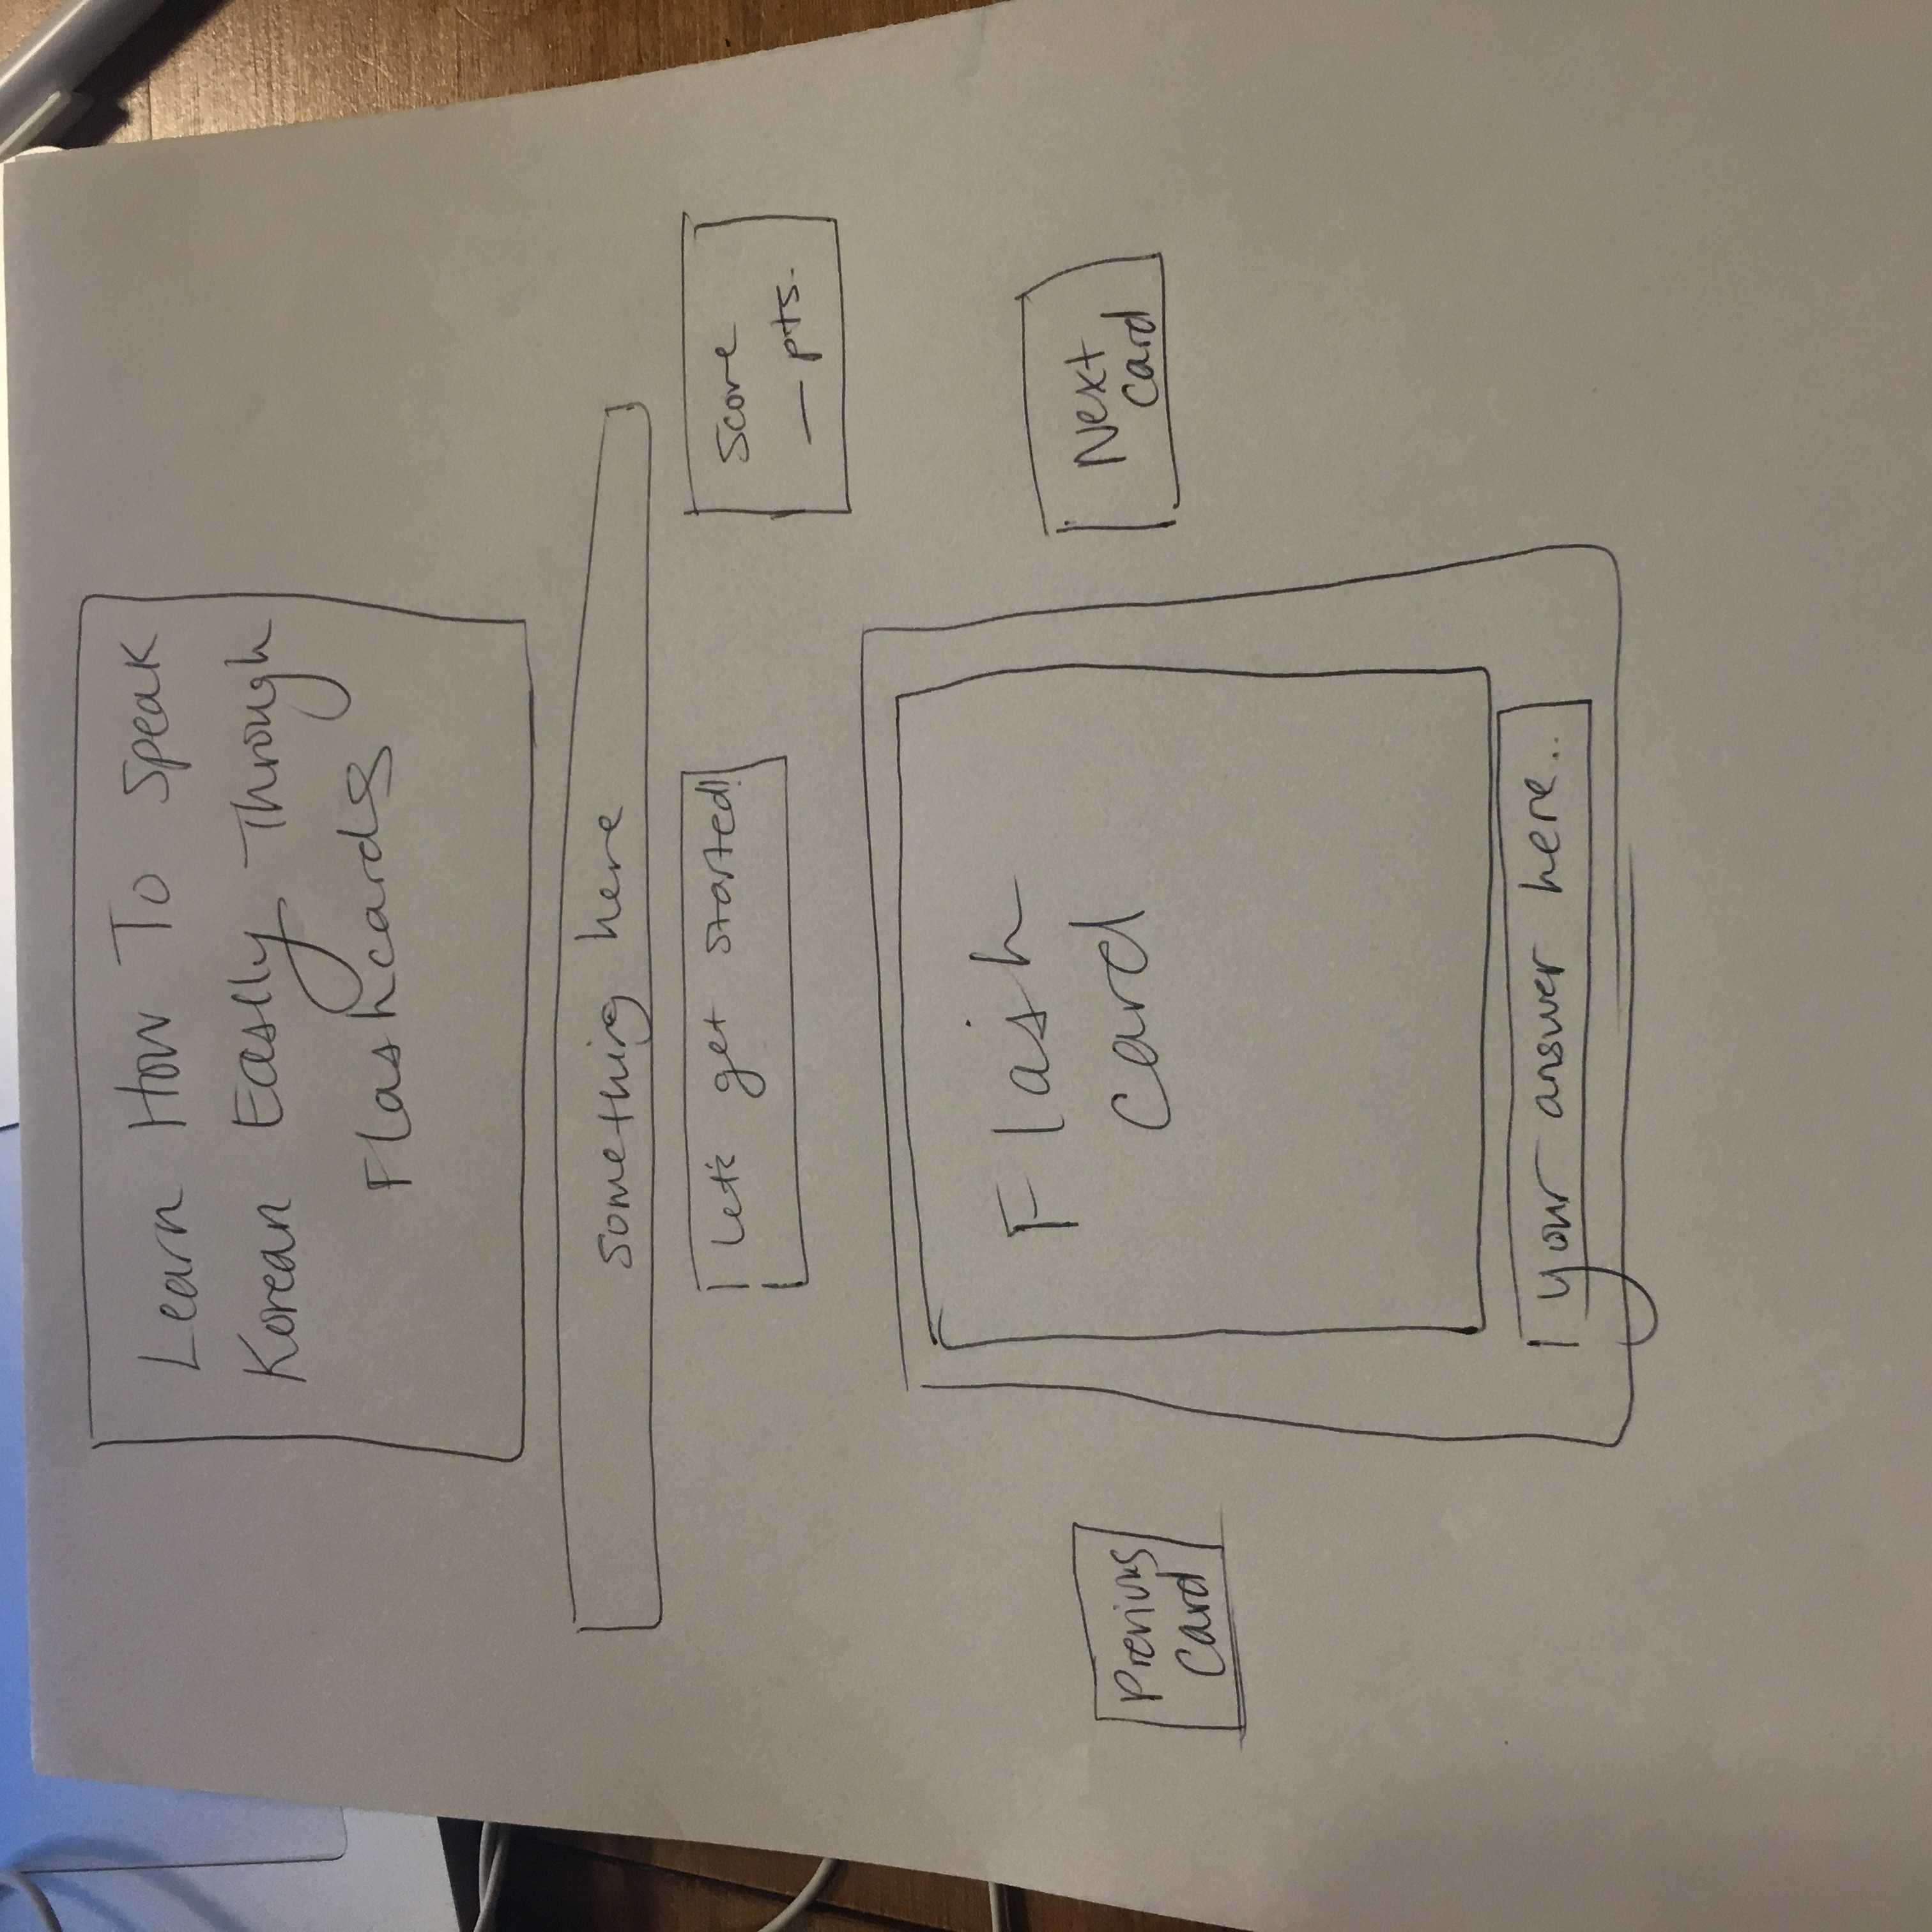 Learn How To Speak
Korean Easily Through
Flashcards
something here
Let's get started!
Score
— pts.
Flash
card
Previous
Card
Next
Card
your answer here..